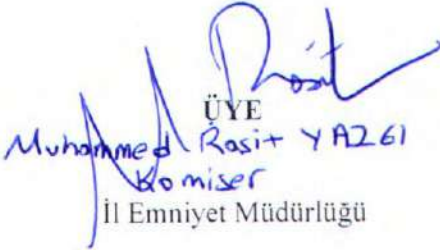 Rasit
ÜYE
Muhammed Rasit YAZGI
Komiser
İl Emniyet Müdürlüğü